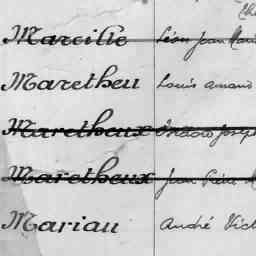 Marcille Léon Jean
Maretheu Louis Amand
Maretheux Isidore Joseph
Maretheux Jean Pierre
Mariau André Vict